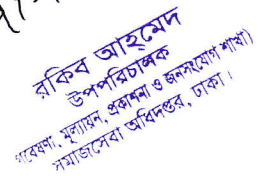 রকিব আহমেদ
উপপরিচালক
গবেষণা, মূল্যায়ন, প্রকাশনা ও জনসংযোগ শাখা)
সমাজসেবা অধিদপ্তর, ঢাকা।